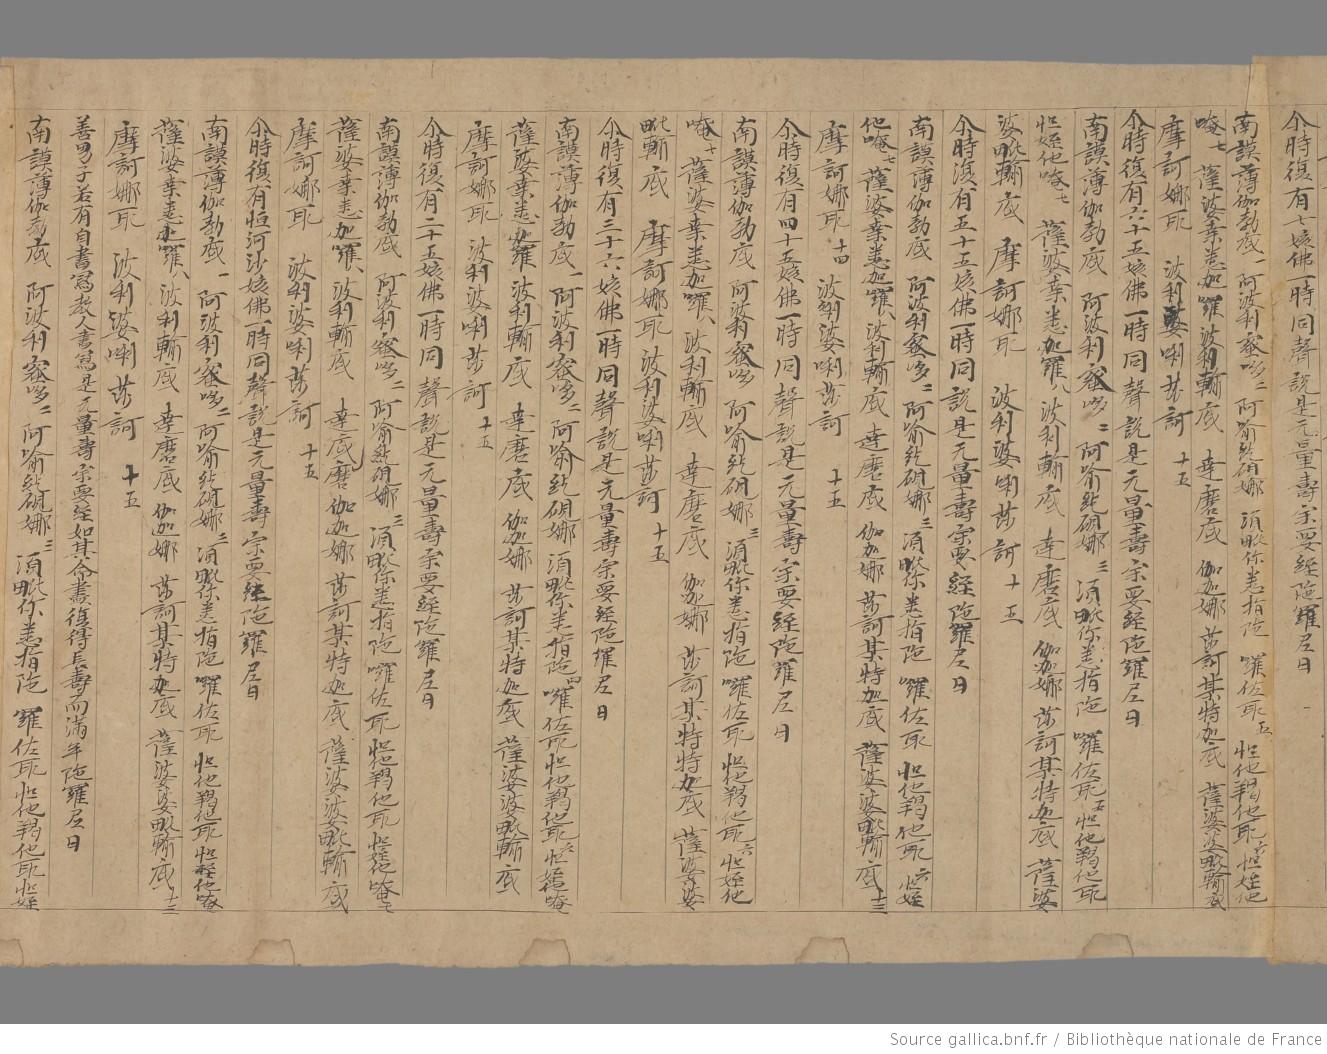 尒時復有七姟佛一時同聲說是无量壽宗要經陁羅尼曰
南謨薄伽勃底一阿波唎蜜哆二阿喻紇硎娜 須毗你悉指陁 囉佐耶五怛他羯他耶六怛姪他
唵七薩婆桒悉伽囉波利輸底 達磨底 伽迦娜莎訶某特伽底 薩婆婆毗輸底
摩訶娜耶 波利婆唎莎訶 十五
尒時復有六十五姟佛一時同聲說是无量壽宗要經陁羅尼曰
南謨薄伽勃底 阿波利蜜哆二阿喻紇硎娜三須毗你悉指陁 囉佐耶五怛他羯他耶
怛姪他唵七 薩婆桒悉伽囉八波利輸底 達磨底 伽迦娜莎訶某特伽底 薩婆
婆毗輸底 摩訶娜耶 波利婆唎莎訶 十五
尒時復有五十五姟佛一時同說是无量壽宗要經陁羅尼曰
南謨薄伽勃底 阿波利蜜哆二阿喻紇硎娜三須毗你悉指陁 囉佐耶 怛他羯他耶六怛姪
他唵七薩婆桒悉伽囉八波利輸底 達磨底 伽迦娜 莎訶某特伽底 薩婆婆毗輸底十三
摩訶娜耶十四 波利婆唎莎訶 十五
尒時復有四十五姟佛一時同聲說是无量壽宗要經陁羅尼曰
南謨薄伽勃底 阿波利蜜哆 阿喻紇硎娜三須毗你悉指陁 囉佐耶 怛他羯他耶六怛姪他
唵七薩婆桒悉伽囉八波利輸底 達磨底 伽迦娜 莎訶某特特伽底 薩婆婆
毗輸底 摩訶娜耶 波利婆唎莎訶 十五
尒時復有三十六姟佛一時同聲說是无量壽宗要經陁羅尼曰
南謨薄伽勃底一阿波利蜜哆二阿喻紇硎娜 須毗你悉指陁四囉佐耶 怛他羯他耶六怛姪他唵
薩婆桒悉伽囉 波利輸底 達磨底 伽迦娜 莎訶某特伽底 薩婆婆毗輸底
摩訶娜耶 波利婆唎莎訶 十五
尒時復有二十五姟佛一時同聲說是无量壽宗要經陁羅尼曰
南謨薄伽勃底 阿波利蜜哆二阿喻紇硎娜三須毗你悉指陁 囉佐耶 怛他羯他耶 怛姪他唵七
薩婆桒悉伽囉八波利輸底 達底磨 伽迦娜 莎訶某特伽底 薩婆婆毗輸底
摩訶娜耶 波利婆唎莎訶 十五
尒時復有恒河沙姟佛一時同聲說是无量壽宗要經陁羅尼曰
南謨薄伽勃底一阿波利蜜哆二阿喻紇硎娜三須毗你悉指陁 囉佐耶 怛他羯他耶 怛姪他唵
薩婆桒悉伽囉八波利輸底 達磨底 伽迦娜 莎訶某特伽底 薩婆婆毗輸底十三
摩訶娜耶 波利婆唎莎訶 十五
善男子若有自書寫教人書寫是无量壽宗要經如其命盡復得長壽而滿年陁羅尼曰
南謨薄伽勃底 阿波利蜜哆二阿喻紇硎娜三須毗你悉指陁 囉佐耶怛他羯他耶怛姪
Source gallica.bnf.fr / Bibliothèque nationale de France